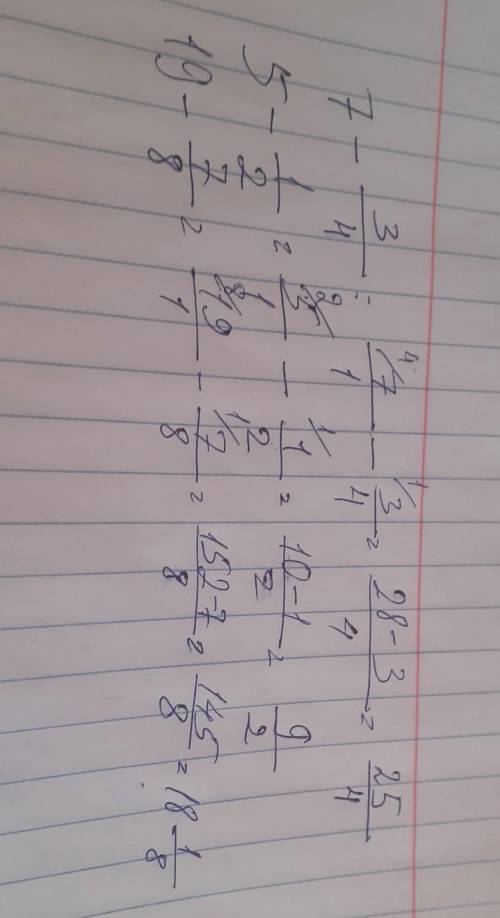 7 - 3/4 = ⁴⁄7/1 - ¹⁄3/4 = 28-3/4 = 25/4
5 - 1/2 = ²⁄5/1 - ¹⁄1/2 = 10-1/2 = 9/2
19 - 7/8 = ⁸⁄19/1 - ¹⁄7/8 = 152-7/8 = 145/8 = 18 1/8